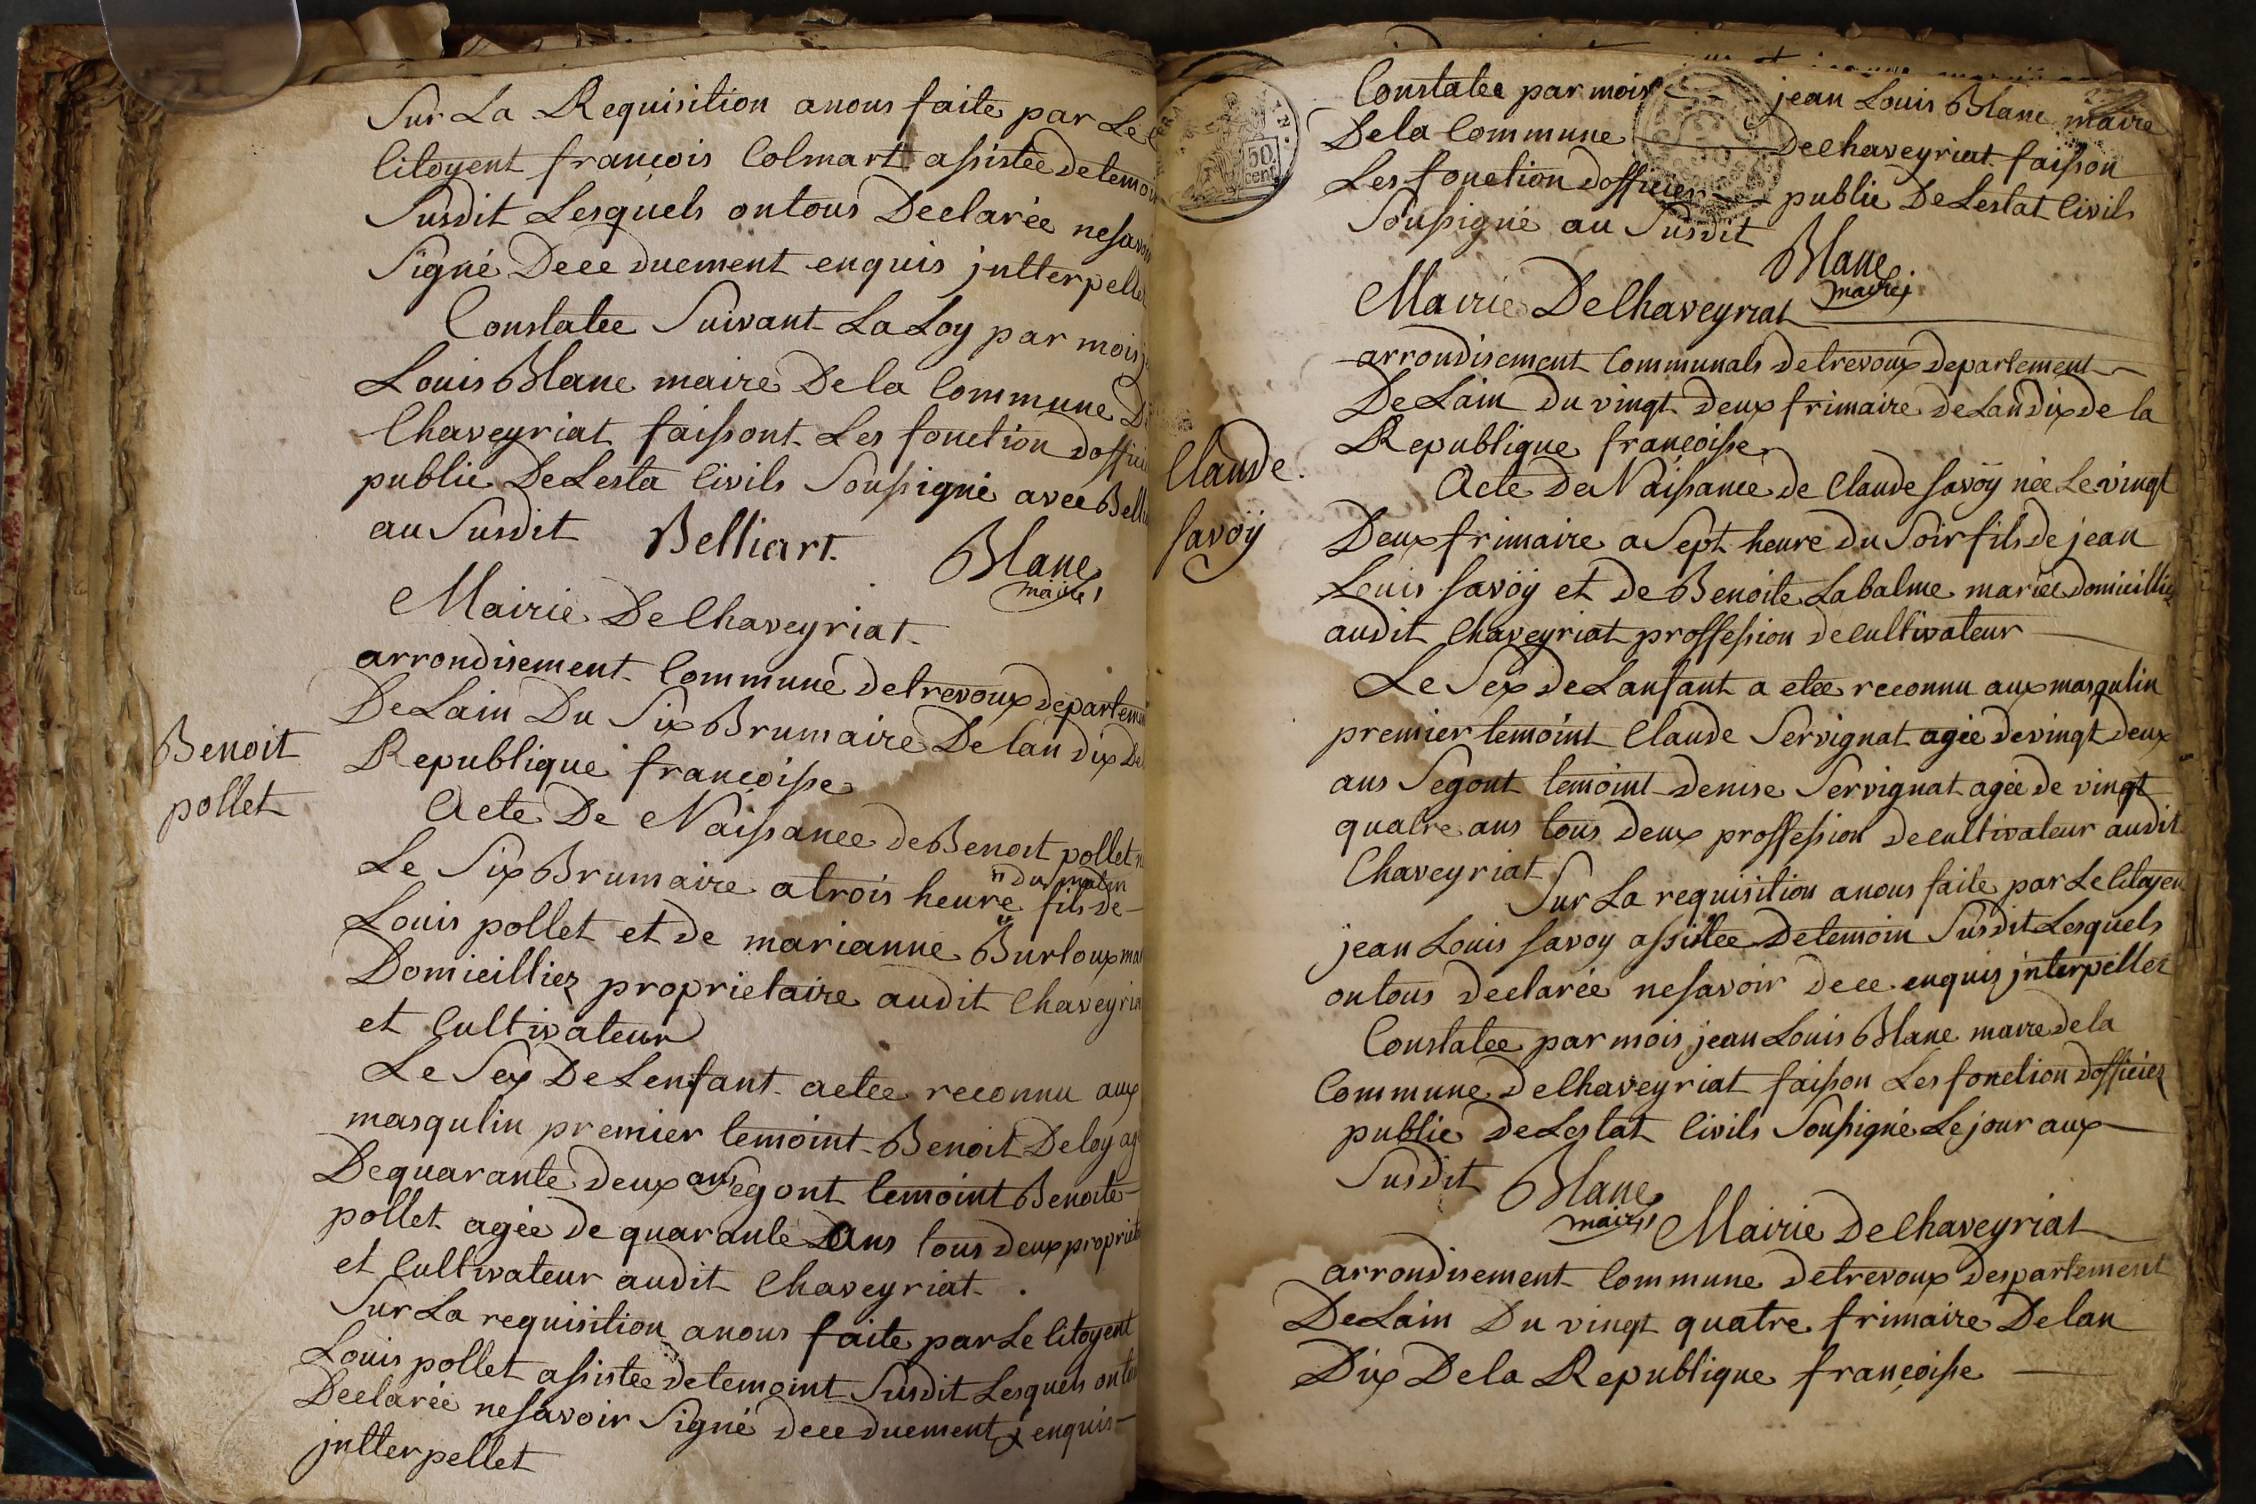 Sur La Requisition a nous faite par Le
Citoyent françois Colmart assistée de temoin
Susdit Lesquels on tous Declarée ne savoir
Signé De ce duement enquis jnterpellez
Constatée Suivant La Loy par mois
Louis Blanc maire De la Commune De
Chaveyriat faissont Les fonction doffici
public De Lesta Civils Soussigné avec Belli
au Susdit Belliart Blanc
maire
Mairie De Chaveyriat
arrondisement Communé de trevoux departem
De Lain Du Six Brumaire De lan dix De
Republique françoisse
Benoit
pollet
Acte De Naissance de Benoit pollet n
Le Six Brumaire a trois heure du matin fils de
Louis pollet et de marianne Burloux ma
Domicilliez proprietaire audit Chaveyria
et Cultivateur
Le Sex De Lenfant a etee reconnu aux
masqulin premier temoint Benoit Deloy ag
De quarante deux ans Segont temoint Benoite
pollet agée de quarante Ans tous deux propriet
et Cultivateur audit Chaveyriat .
Sur La requisition a nous faite par Le Citoyent
Louis pollet assistée de temoint Susdit Lesquels on to
Declarée ne savoir Signé de ce duement enquis
jntterpellet
50
cent
Constatee par mois jean Louis Blanc maire
De la Commune De Chaveyriat faisson
Les fonction dofficier public De Lestat Civils
Soussigné au Susdit
Blanc
maire
Mairie De Chaveyriat
arrondisement Communals de trevoux departement
De Lain Du vingt deux frimaire de Lan dix de la
Republique françoisse
Claude
savoÿ
Acte De Naissance de Claude savoÿ née Le vingt
Deux frimaire a Sept heure du Soir fils de jean
Louis savoÿ et de Benoite Labalme mariée domicilliez
audit Chaveyriat proffession de cultivateur
Le Sex de Lanfant a etée reconnu aux masqulin
premier temoint Claude Servignat agée de vingt deux
ans Segont temoint denise Servignat agée de vingt
quatre ans tous deux proffession de cultivateur audit
Chaveyriat
Sur La requisition a nous faite par Le Citoyen
jean Louis savoy assistee De temoin Susdit Lesquels
on tous declarée ne savoir de ce enquis jnterpellez
Constatee par mois jean Louis Blanc maire de la
Commune de Chaveyriat faisson Les fonction dofficiez
public de Lestat Civils Soussigné Le jour aux
Susdit
Blanc
maire
Mairie de Chaveyriat
arrondisement Commune de trevoux despartement
De Lain Du vingt quatre frimaire De lan
Dix De la Republique françoisse